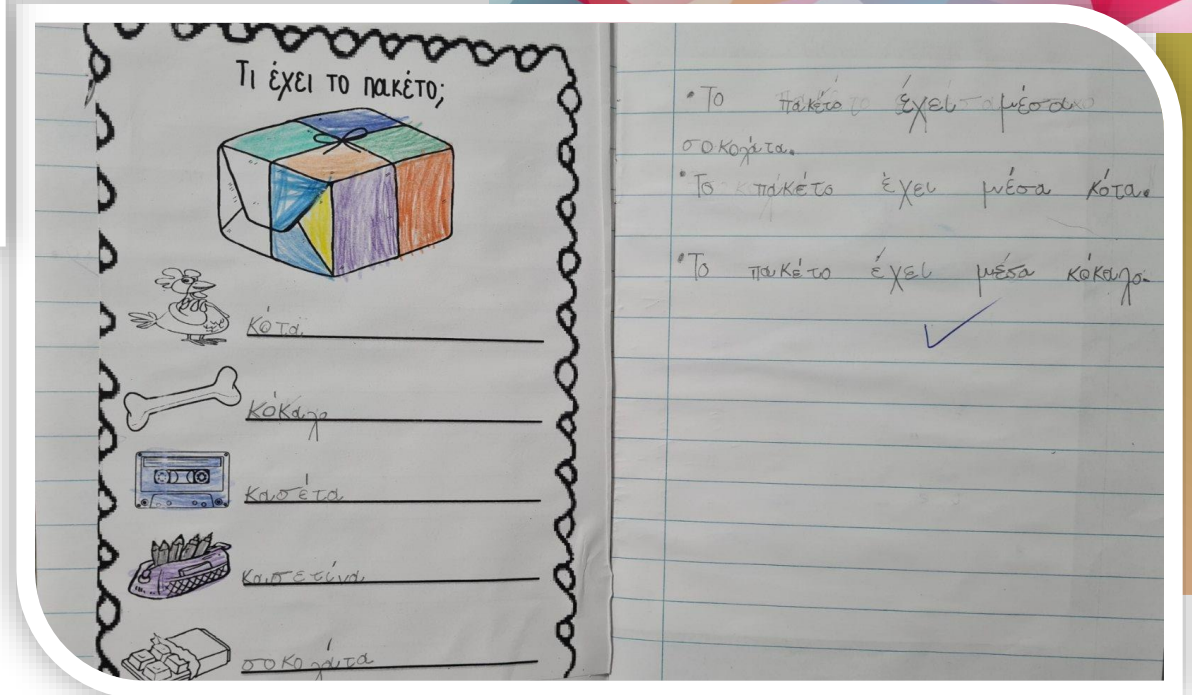 Τι έχει το πακέτο;
κότα
κόκαλο
κασέτα
κασετίνα
σοκολάτα
• Το πακέτο έχει μέσα
σοκολάτα.
• Το πακέτο έχει μέσα κότα.
• Το πακέτο έχει μέσα κόκαλο.